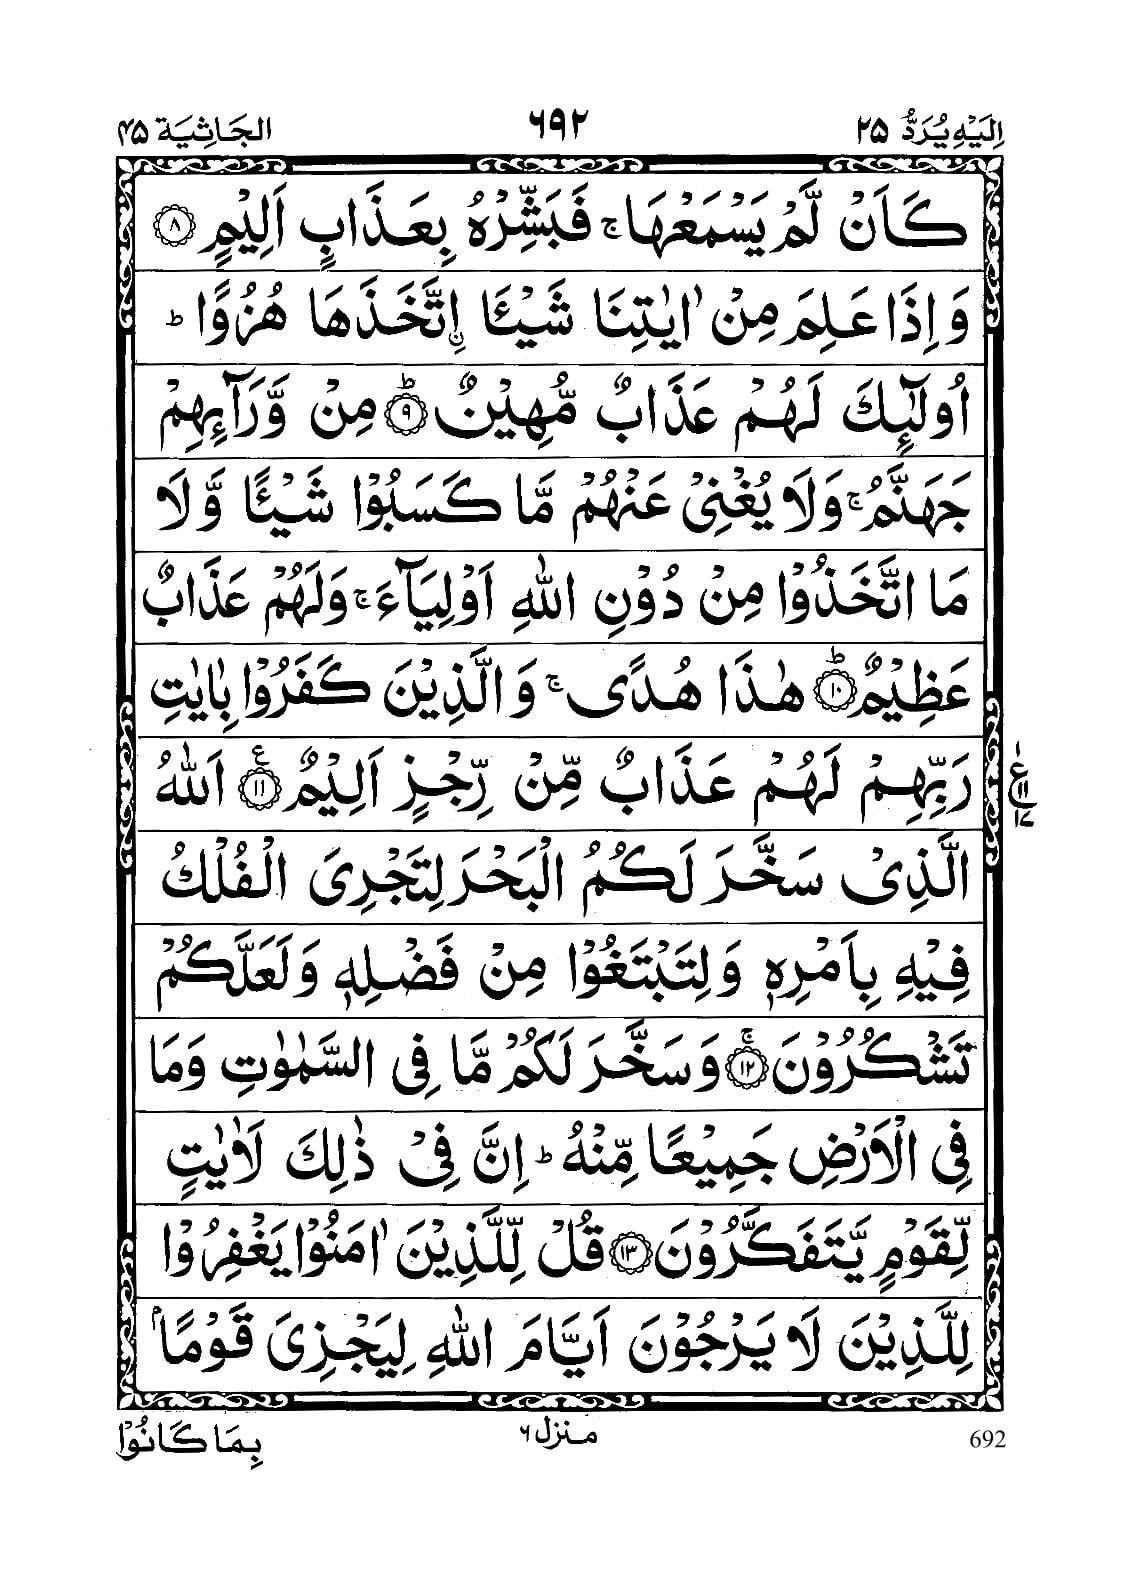 اِلَيْهِ يُرَدُّ ٢٥ ٦٩٢ الجَاثِيَة ٤٥
كَاَنْ لَّمْ يَسْمَعْهَا ۚ فَبَشِّرْهُ بِعَذَابٍ اَلِيْمٍ ۝٨
وَ اِذَا عَلِمَ مِنْ اٰيٰتِنَا شَيْـًٔا اِۨتَّخَذَهَا هُزُوًا ؕ
اُولٰٓئِكَ لَهُمْ عَذَابٌ مُّهِيْنٌ ؕ۝٩ مِنْ وَّرَآئِهِمْ
جَهَنَّمُ ۚ وَلَا يُغْنِىْ عَنْهُمْ مَّا كَسَبُوْا شَيْـًٔا وَّ لَا
مَا اتَّخَذُوْا مِنْ دُوْنِ اللّٰهِ اَوْلِيَآءَ ۚ وَلَهُمْ عَذَابٌ
عَظِيْمٌ ؕ۝١٠ هٰذَا هُدًى ۚ وَ الَّذِيْنَ كَفَرُوْا بِاٰيٰتِ
رَبِّهِمْ لَهُمْ عَذَابٌ مِّنْ رِّجْزٍ اَلِيْمٌ ۝١١ ع اَللّٰهُ
الَّذِىْ سَخَّرَ لَكُمُ الْبَحْرَ لِتَجْرِىَ الْفُلْكُ
فِيْهِ بِاَمْرِهٖ وَلِتَبْتَغُوْا مِنْ فَضْلِهٖ وَلَعَلَّكُمْ
تَشْكُرُوْنَ ۚ۝١٢ وَسَخَّرَ لَكُمْ مَّا فِى السَّمٰوٰتِ وَمَا
فِى الْاَرْضِ جَمِيْعًا مِّنْهُ ؕ اِنَّ فِىْ ذٰلِكَ لَاٰيٰتٍ
لِّقَوْمٍ يَّتَفَكَّرُوْنَ ۝١٣ قُلْ لِّلَّذِيْنَ اٰمَنُوْا يَغْفِرُوْا
لِلَّذِيْنَ لَا يَرْجُوْنَ اَيَّامَ اللّٰهِ لِيَجْزِىَ قَوْمًاۢ
ع ١ ١١ ١٧
692 منزل ٦ بِمَا كَانُوْا